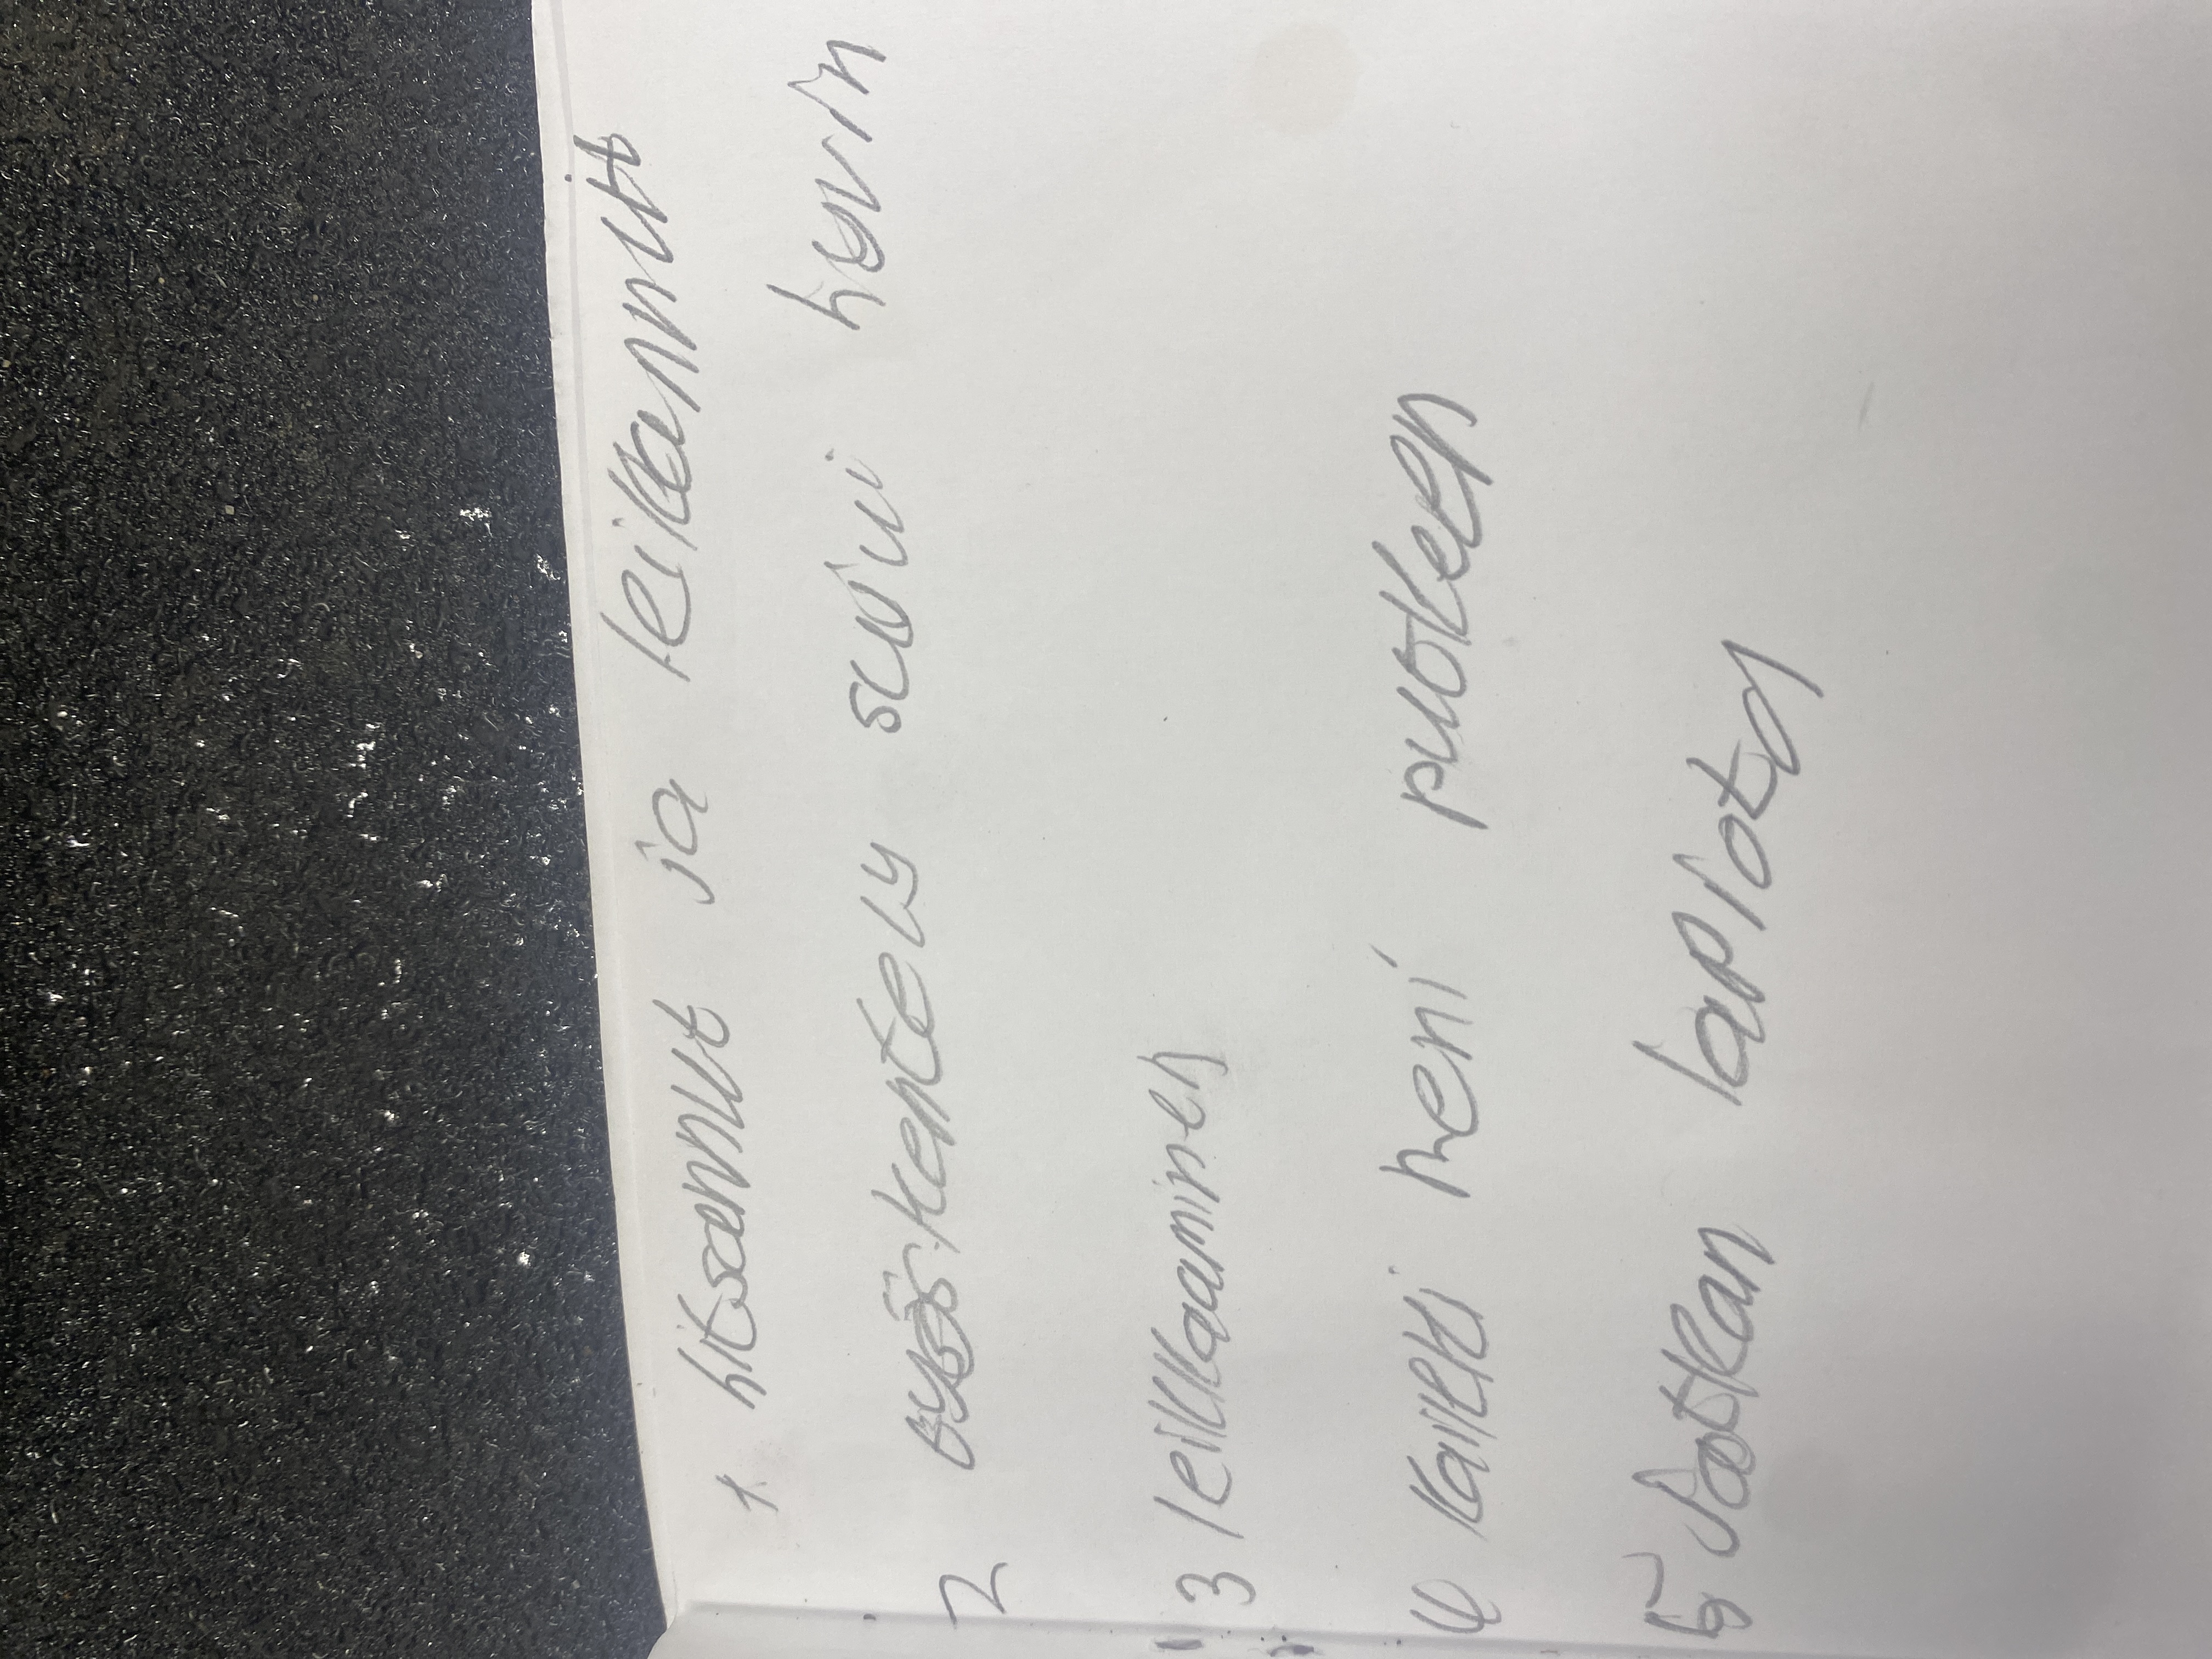 1. hitsannut ja leikannut
2 työskentely sujui hyvin
3 leikkaaminen
4 kaikki meni puolleen
5 Jatkan lapiota